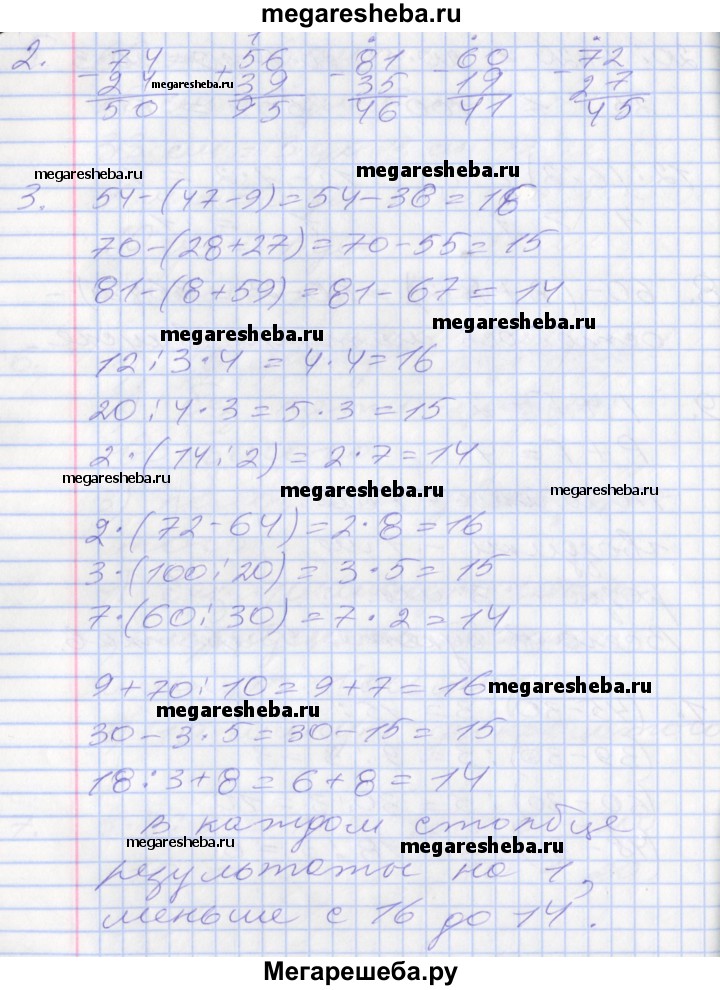 megaresheba.ru
2. 74 56 81 60 72
- 24 + 39 - 35 - 19 - 27
50 95 46 41 45
megaresheba.ru
megaresheba.ru
megaresheba.ru
3. 54-(47-9)=54-38=16
70-(28+27)=70-55=15
81-(8+59)=81-67=14
megaresheba.ru
megaresheba.ru
12:3·4=4·4=16
20:4·3=5·3=15
2·(14:2)=2·7=14
megaresheba.ru
megaresheba.ru
megaresheba.ru
2·(72-64)=2·8=16
3·(100:20)=3·5=15
7·(60:30)=7·2=14
9+70:10=9+7=16
megaresheba.ru
megaresheba.ru
30-3·5=30-15=15
18:3+8=6+8=14
В каждом столбце
megaresheba.ru
megaresheba.ru
результаты на 1
меньше с 16 до 14.
Мегарешеба.ру